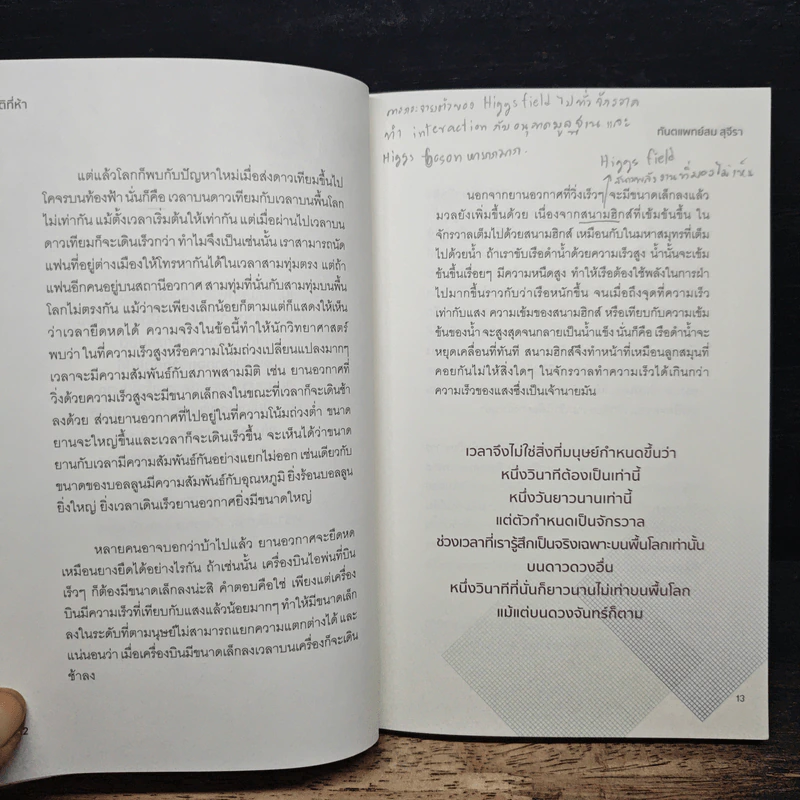 ติที่ห้า
แต่แล้วโลกก็พบกับปัญหาใหม่เมื่อส่งดาวเทียมขึ้นไป
โคจรบนท้องฟ้า นั่นก็คือ เวลาบนดาวเทียมกับเวลาบนพื้นโลก
ไม่เท่ากัน แม้ตั้งเวลาเริ่มต้นให้เท่ากัน แต่เมื่อผ่านไปเวลาบน
ดาวเทียมก็จะเดินเร็วกว่า ทำไมจึงเป็นเช่นนั้น เราสามารถนัด
แฟนที่อยู่ต่างเมืองให้โทรหากันได้ในเวลาสามทุ่มตรง แต่ถ้า
แฟนอีกคนอยู่บนสถานีอวกาศ สามทุ่มที่นั่นกับสามทุ่มบนพื้น
โลกไม่ตรงกัน แม้ว่าจะเพียงเล็กน้อยก็ตามแต่ก็แสดงให้เห็น
ว่าเวลายืดหดได้ ความจริงในข้อนี้ทำให้นักวิทยาศาสตร์
พบว่า ในที่ความเร็วสูงหรือความโน้มถ่วงเปลี่ยนแปลงมากๆ
เวลาจะมีความสัมพันธ์กับสภาพสามมิติ เช่น ยานอวกาศที่
วิ่งด้วยความเร็วสูงจะมีขนาดเล็กลงในขณะที่เวลาก็จะเดินช้า
ลงด้วย ส่วนยานอวกาศที่ไปอยู่ในที่ความโน้มถ่วงต่ำ ขนาด
ยานจะใหญ่ขึ้นและเวลาก็จะเดินเร็วขึ้น จะเห็นได้ว่าขนาด
ยานกับเวลามีความสัมพันธ์กันอย่างแยกไม่ออก เช่นเดียวกับ
ขนาดของบอลลูนมีความสัมพันธ์กับอุณหภูมิ ยิ่งร้อนบอลลูน
ยิ่งใหญ่ ยิ่งเวลาเดินเร็วยานอวกาศยิ่งมีขนาดใหญ่
หลายคนอาจบอกว่าบ้าไปแล้ว ยานอวกาศจะยืดหด
เหมือนยางยืดได้อย่างไรกัน ถ้าเช่นนั้น เครื่องบินไอพ่นที่บิน
เร็วๆ ก็ต้องมีขนาดเล็กลงน่ะสิ คำตอบคือใช่ เพียงแต่เครื่อง
บินมีความเร็วที่เทียบกับแสงแล้วน้อยมากๆ ทำให้มีขนาดเล็ก
ลงในระดับที่ตามนุษย์ไม่สามารถแยกความแตกต่างได้ และ
แน่นอนว่า เมื่อเครื่องบินมีขนาดเล็กลงเวลาบนเครื่องก็จะเดิน
ช้าลง
2
การกระจายตัวของ Higgs field ไปทั่วจักรวาล
ทำ interaction กับอนุภาคมูลฐาน และ
Higgs boson
ทันตแพทย์สม สุจีรา
Higgs field
สนามพลังงานที่มองไม่เห็น
นอกจากยานอวกาศที่วิ่งเร็วๆ จะมีขนาดเล็กลงแล้ว
มวลยังเพิ่มขึ้นด้วย เนื่องจากสนามฮิกส์ที่เข้มข้นขึ้น ใน
จักรวาลเต็มไปด้วยสนามฮิกส์ เหมือนกับในมหาสมุทรที่เต็ม
ไปด้วยน้ำ ถ้าเราขับเรือดำน้ำด้วยความเร็วสูง น้ำนั้นจะเข้ม
ข้นขึ้นเรื่อยๆ มีความหนืดสูง ทำให้เรือต้องใช้พลังในการฝ่า
ไปมากขึ้นราวกับว่าเรือหนักขึ้น จนเมื่อถึงจุดที่ความเร็ว
เท่ากับแสง ความเข้มของสนามฮิกส์ หรือเทียบกับความเข้ม
ข้นของน้ำ จะสูงสุดจนกลายเป็นน้ำแข็ง นั่นก็คือ เรือดำน้ำจะ
หยุดเคลื่อนที่ทันที สนามฮิกส์จึงทำหน้าที่เหมือนลูกสมุนที่
คอยกันไม่ให้สิ่งใดๆ ในจักรวาลทำความเร็วได้เกินกว่า
ความเร็วของแสงซึ่งเป็นเจ้านายมัน
เวลาจึงไม่ใช่สิ่งที่มนุษย์กำหนดขึ้นว่า
หนึ่งวินาทีต้องเป็นเท่านี้
หนึ่งวันยาวนานเท่านี้
แต่ตัวกำหนดเป็นจักรวาล
ช่วงเวลาที่เรารู้สึกเป็นจริงเฉพาะบนพื้นโลกเท่านั้น
บนดาวดวงอื่น
หนึ่งวินาทีที่นั่นก็ยาวนานไม่เท่าบนพื้นโลก
แม้แต่บนดวงจันทร์ก็ตาม
13